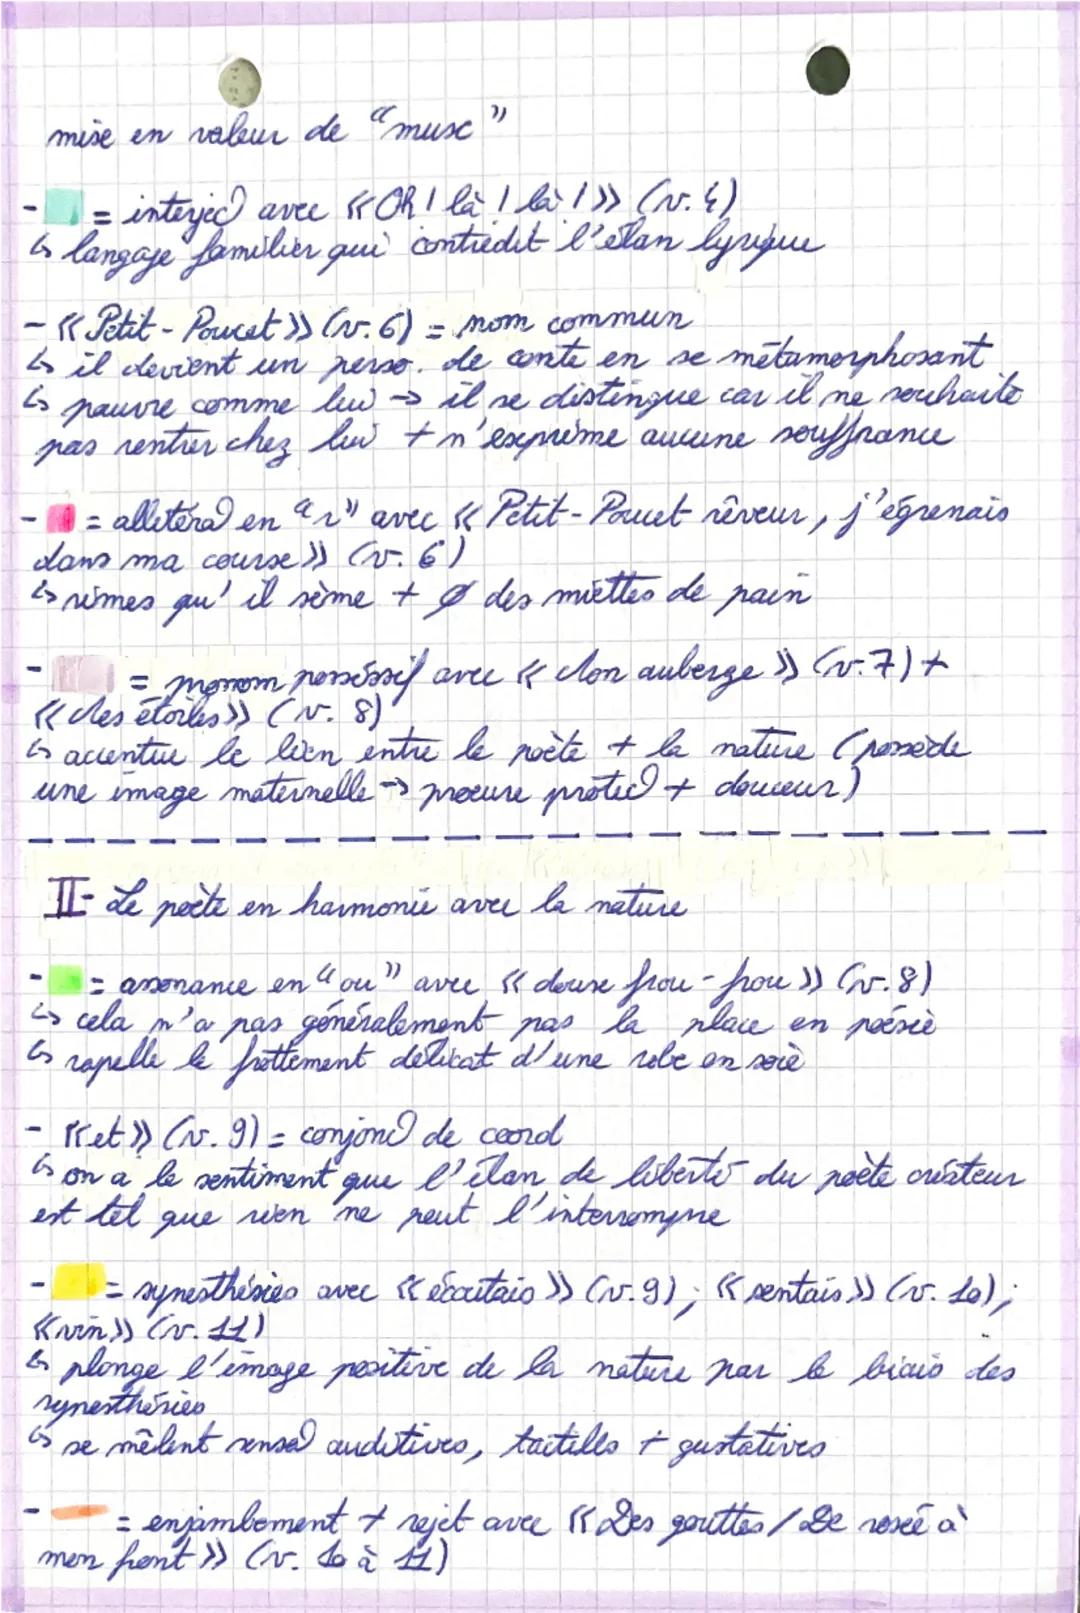 mise en valeur de "muse"
- = interjec° avec «Oh ! là ! là !» (v.4)
↳ langage familier qui contredit l'élan lyrique
- «Petit-Poucet» (v.6) = nom commun
↳ il devient un perso. de conte en se métamorphosant
↳ pauvre comme lui → il se distingue car il ne souhaite
pas rentrer chez lui + n'exprime aucune souffrance
- = allitéra° en "r" avec « Petit-Poucet rêveur, j'égrenais
dans ma course» (v. 6)
↳ rimes qu'il sème + Ø des miettes de pain
- = pronom possessif avec « Mon auberge » (v.7) +
«Mes étoiles» (v. 8)
↳ accentue le lien entre le poète + la nature (possède
une image maternelle → procure protec° + douceur)
II- Le poète en harmonie avec la nature
- = assonance en "ou" avec « doux frou-frou» (v.8)
↳ cela n'a pas généralement pas la place en poésie
↳ rapelle le frottement délicat d'une robe en soie
- «et» (v. 9) = conjonc° de coord
↳ on a le sentiment que l'élan de liberté du poète créateur
est tel que rien ne peut l'interrompre
- = synesthésies avec «écoutais» (v.9) ; «sentais» (v. 10) ;
«vin» (v. 11)
↳ plonge l'image positive de la nature par le biais des
synesthésies
↳ se mêlent sensa° auditives, tactiles + gustatives
- = enjambement + rejet avec «Des gouttes / De rosée à
mon front » (v. 10 à 11)